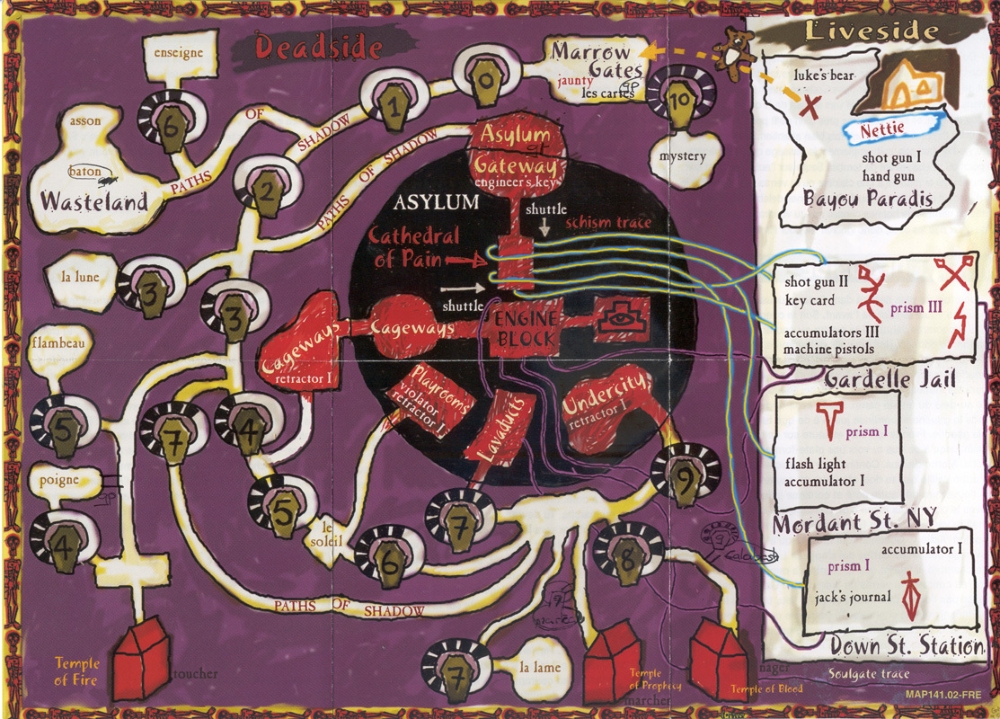 Deadside
Liveside
enseigne
Marrow
Gates
jaunty
les cartes
luke's bear
Nettie
shot gun I
hand gun
Bayou Paradis
0
1
10
6
mystery
asson
baton
Wasteland
PATHS
OF
SHADOW
2
PATHS OF SHADOW
Asylum
Gateway
engineer's key
ASYLUM
shuttle
schism trace
Cathedral
of Pain
shuttle
la lune
3
3
ENGINE
BLOCK
Cageways
Cageways
retractor I
shot gun II
key card
prism III
accumulators III
machine pistols
Gardelle Jail
flambeau
5
7
4
Playrooms
violator
retractor I
Lavaducts
Undercity
retractor I
prism I
flash light
accumulator I
Mordant St. NY
poigne
4
5
le
soleil
6
7
8
9
accumulator I
prism I
jack's journal
Down St. Station
PATHS OF SHADOW
Temple
of Fire
toucher
7
la lame
Temple
of Prophecy
marcher
nager
Temple of Blood
Soulgate trace
MAP141.02-FRE